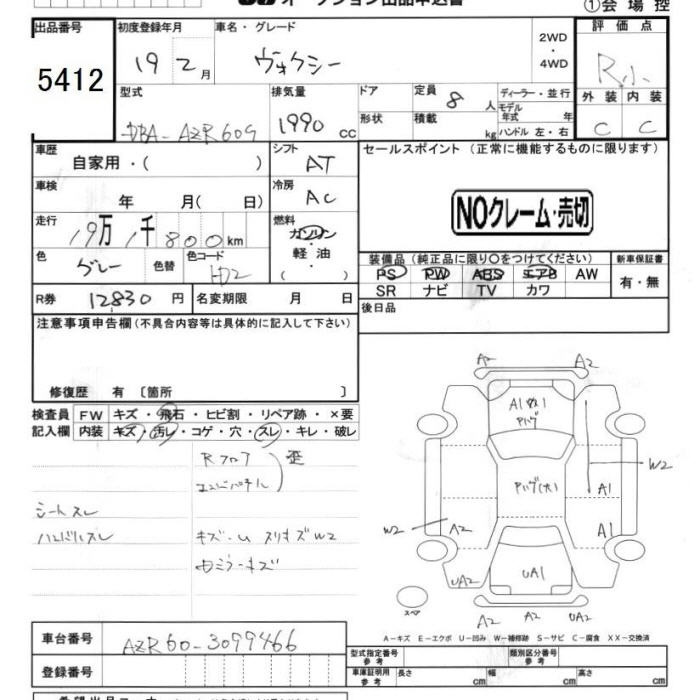 オークション出品申込書
①会場控
出品番号 初度登録年月 車名・グレード 評価点
5412 19 2月 ヴォクシー 2WD ・ 4WD R小
型式 排気量 ドア 定員 8人 ディーラー・並行 外装 内装
DBA-AZR60G 1990cc 形状 積載 kg モデル年式 年 ハンドル 左・右 C C
車歴 自家用・( ) シフト AT セールスポイント(正常に機能するものに限ります)
車検 年 月( 日) 冷房 AC NOクレーム・売切
走行 19万1千800km 燃料 ガソリン・軽油・( )
色 グレー 色替 色コード 1D2
装備品(純正品に限り○をつけてください) 新車保証書
PS PW ABS エアB AW 有・無
SR ナビ TV カワ
R券 12830円 名変期限 月 日 後日品
注意事項申告欄(不具合内容等は具体的に記入して下さい)
修復歴 有 〔箇所 〕
検査員 FW キズ・飛石・ヒビ割・リペア跡・×要
記入欄 内装 キズ・汚レ・コゲ・穴・スレ・キレ・破レ
Rフロア 歪
エンドパネル
シートスレ
ハンドルスレ
キズ・ム スリキズW2
ミラーキズ
A2 A2
A1
W2
A1
W2 A2 A1
UA2 UA1
A2 A2 UA2
スペア
A-キズ E-エクボ U-凹み W-補修跡 S-サビ C-腐食 XX-交換済
車台番号 AZR60-3099466
型式指定番号 参考 類別区分番号 参考
登録番号
車庫証明用 参考 長さ cm 幅 cm 高さ cm